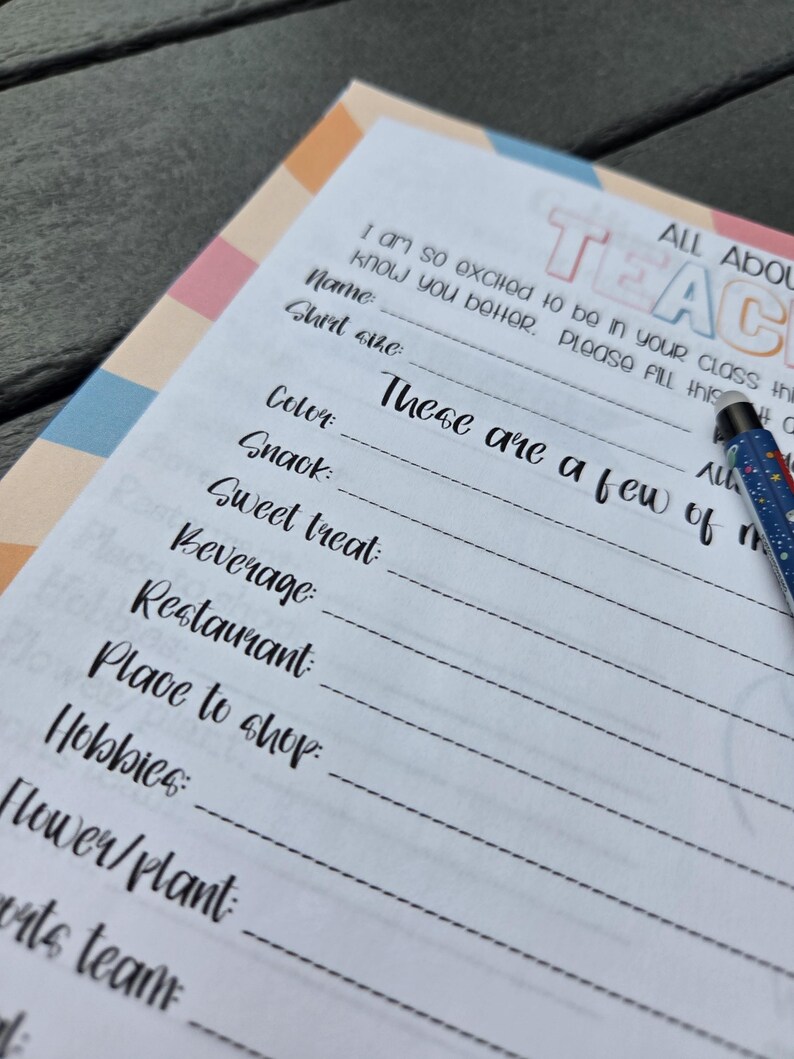 ALL ABOU
TEAC
I am so excited to be in your class thi
know you better. Please fill this
Name:
Shirt size: All
These are a few of m
Color:
Snack:
Sweet treat:
Beverage:
Restaurant:
Place to shop:
Hobbies:
Flower/plant:
orts team: